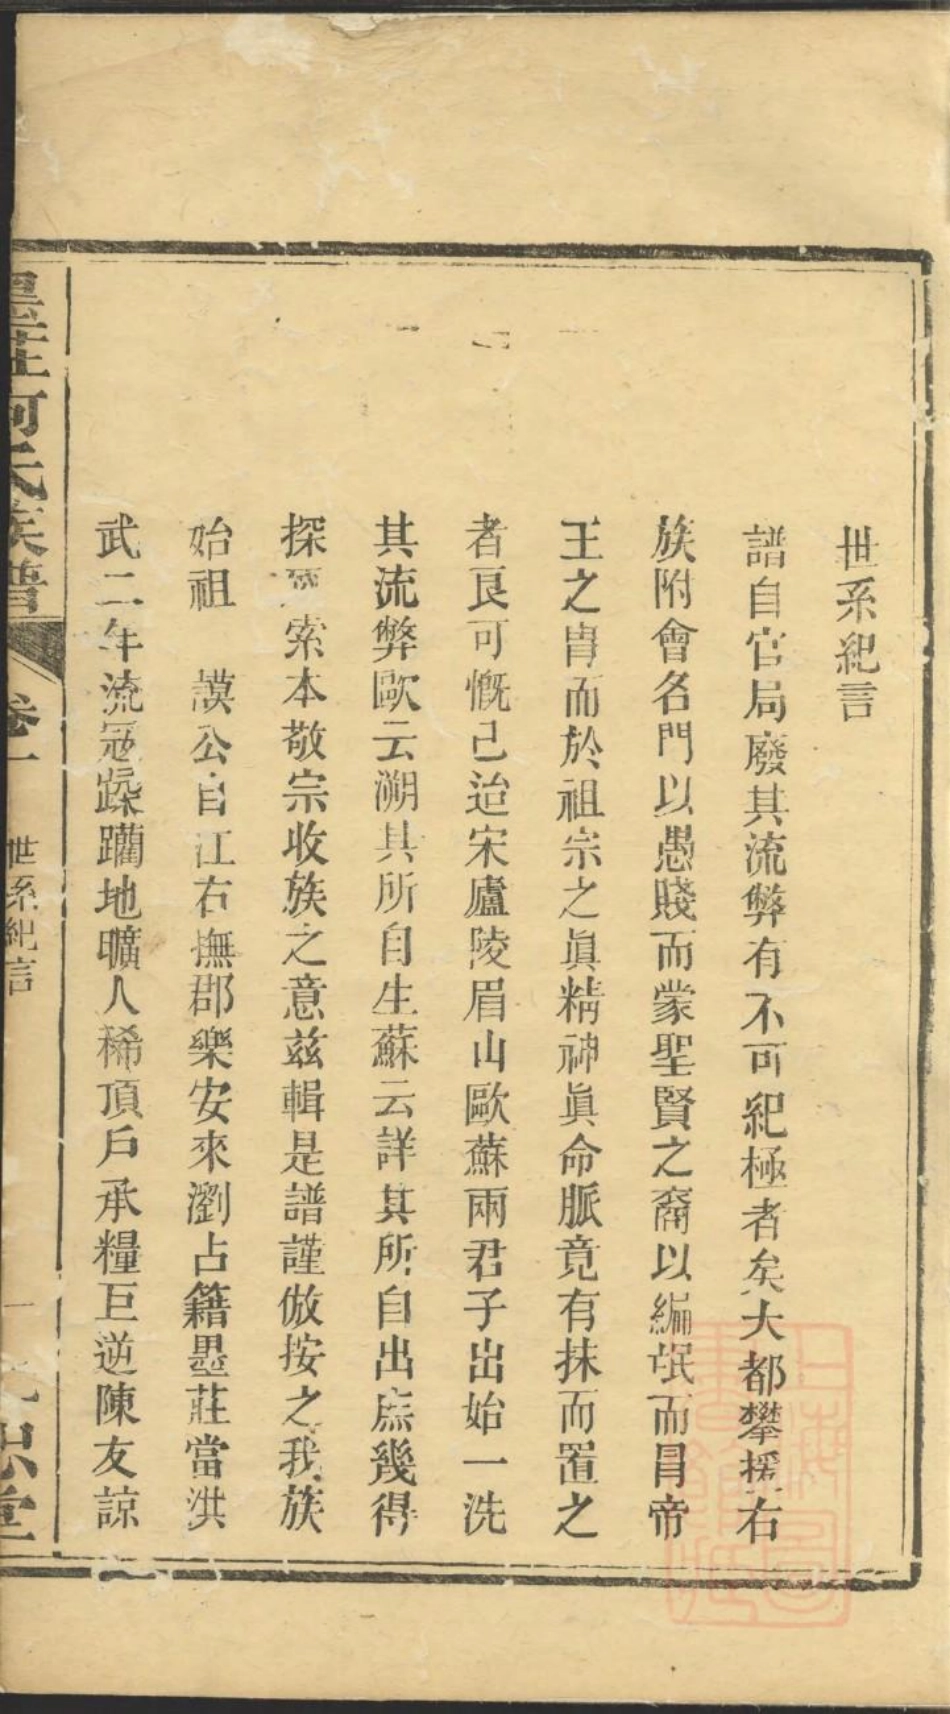 世系紀言
譜自官局廢其流弊有不可紀極者矣大都攀援右
族附會名門以愚賤而蒙聖賢之裔以編氓而冒帝
王之胄而於祖宗之眞精神眞命脈竟有抹而置之
者良可慨已迨宋廬陵眉山歐蘇兩君子出始一洗
其流弊歐云溯其所自生蘇云詳其所自出庶幾得
探 索本敬宗收族之意兹輯是譜謹倣按之我族
始祖 謨公自江右撫郡樂安來瀏占籍墨莊當洪
武二年流冦蹂躪地曠人稀頂戶承糧巨逆陳友諒
墨莊何氏族譜 卷一 世系紀言 一 忠堂
上海圖書館藏